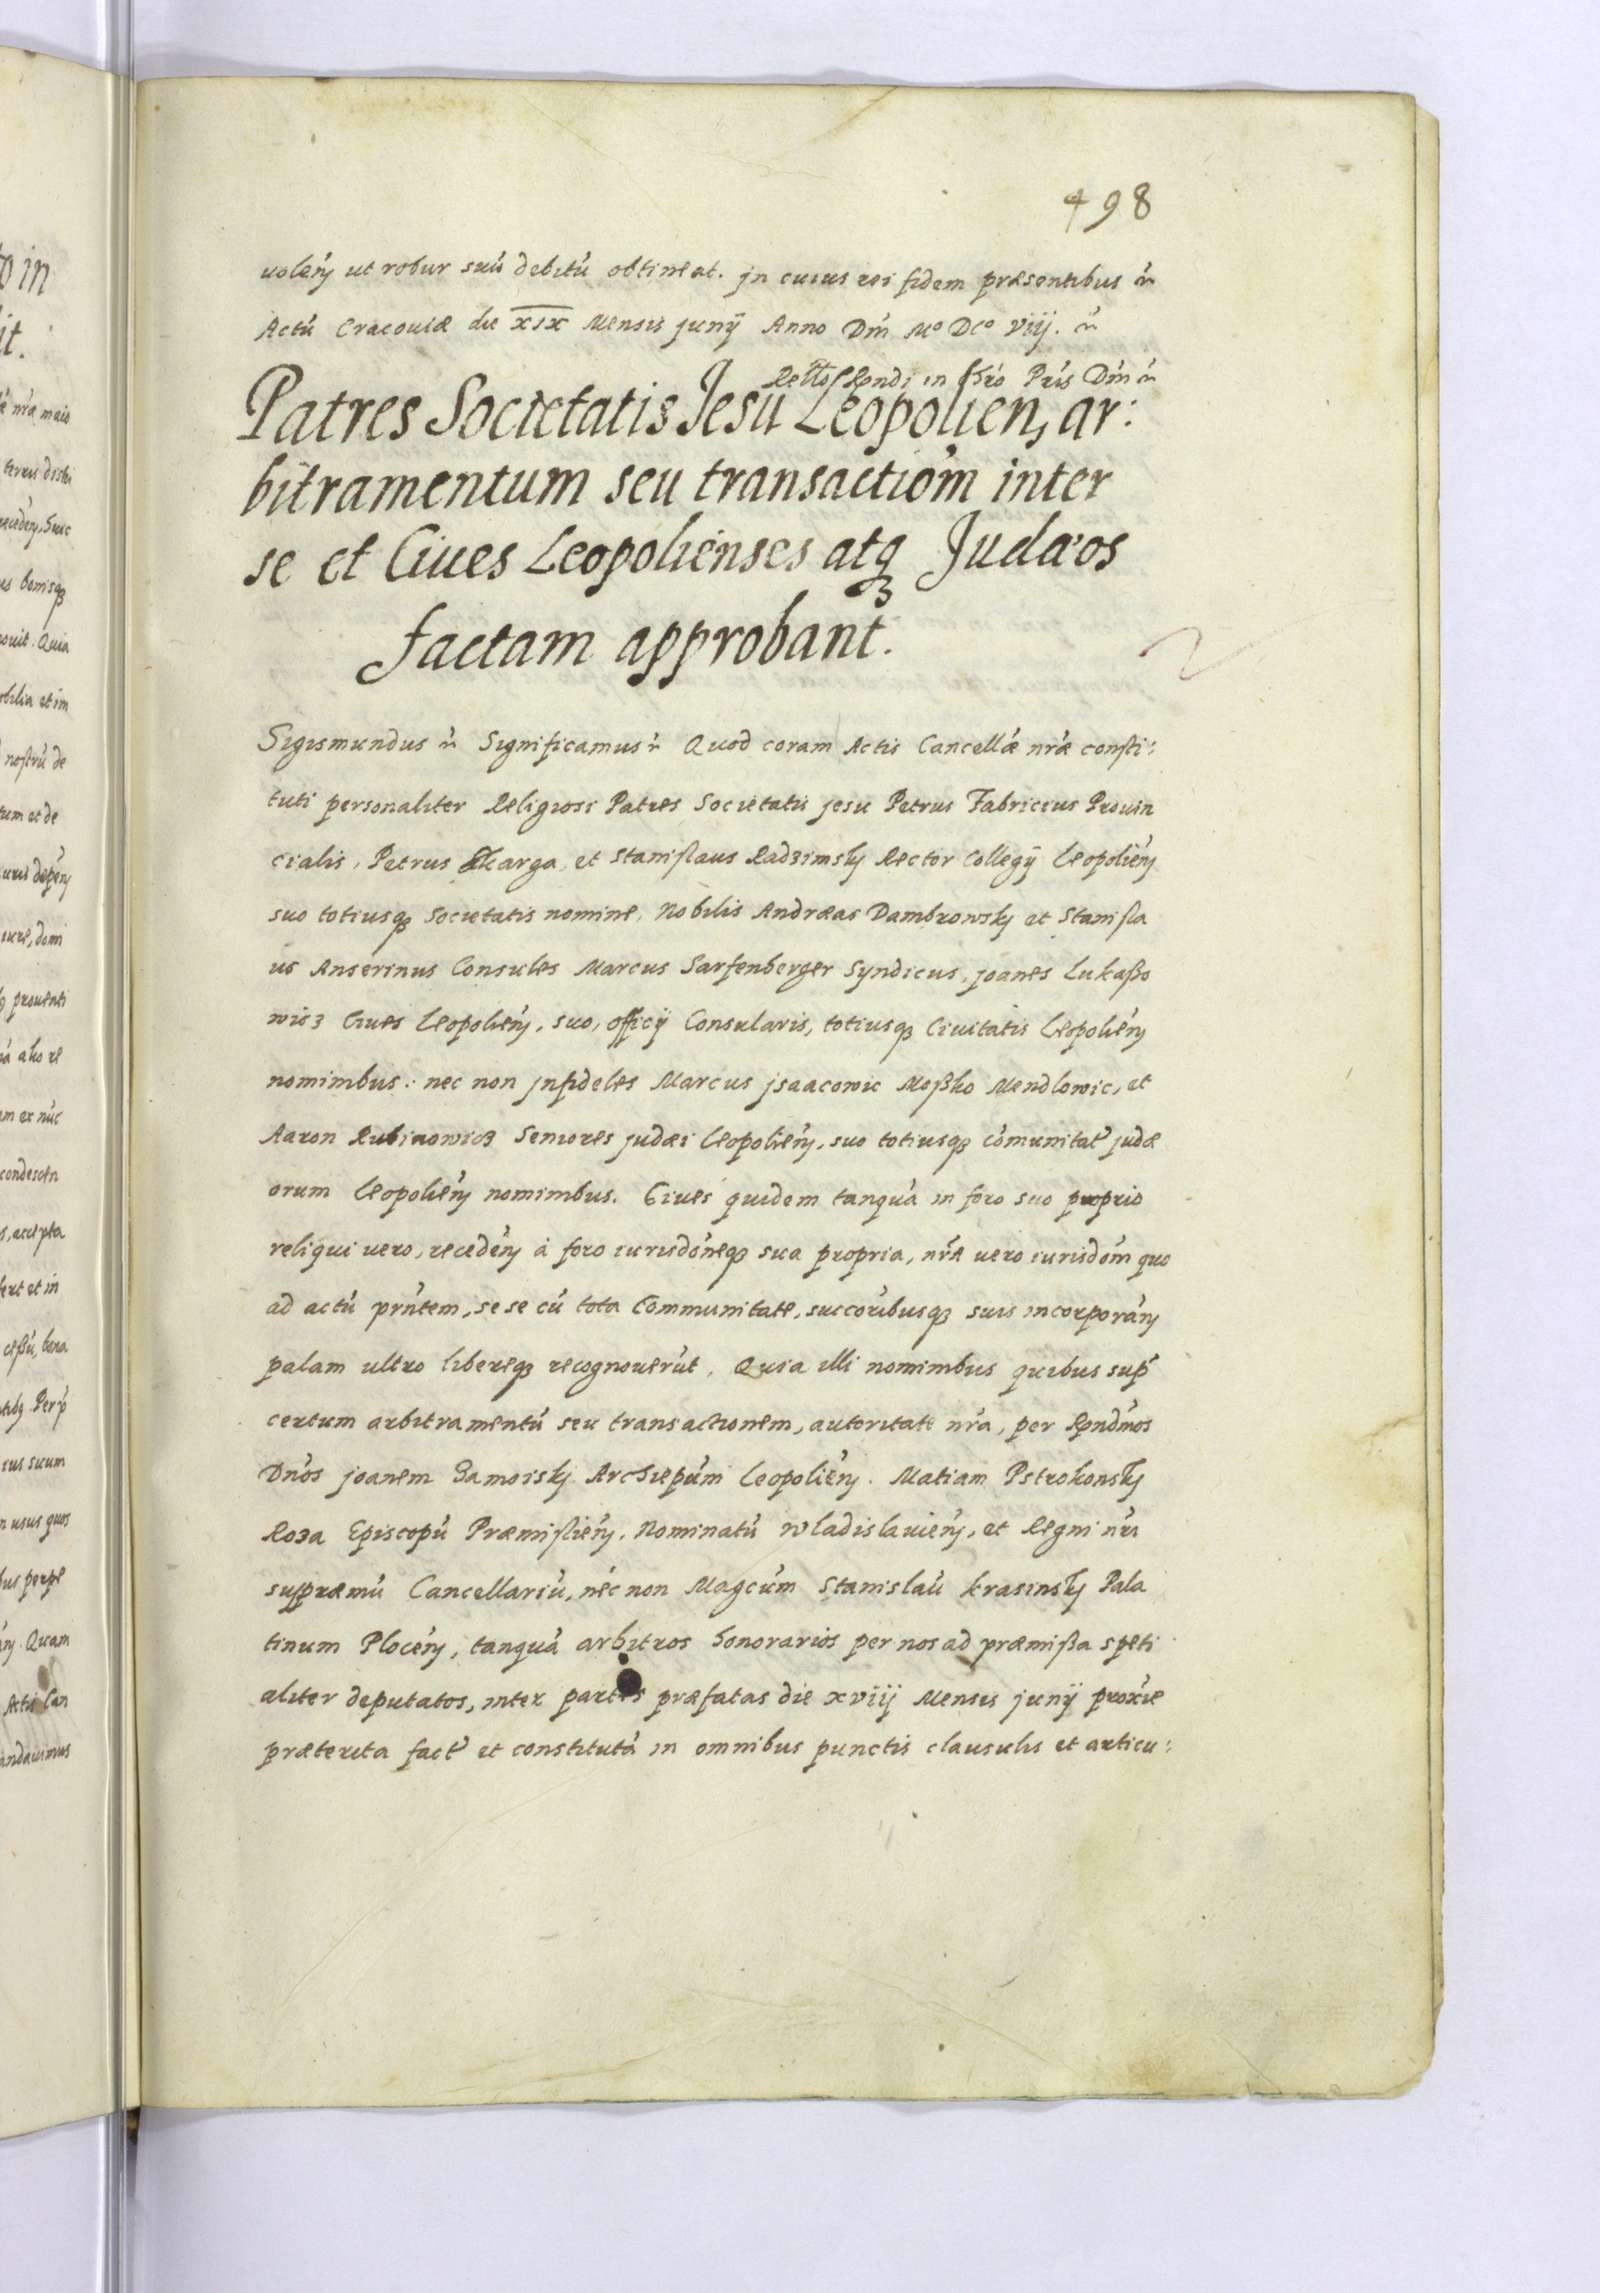 498
uoleń ut robur suū debitū obtineat. jn cuius rei fidem præsentibus
Actū Cracouiæ die XIX Mensis junij Anno Dńi Mº DCº viij.
Relłº Rendi in Chrō Pris Dńi
Patres Societatis Jesu Leopolien, ar:
bitramentum seu transactiōm inter
se et Ciues Leopolienses atq Judæos
factam approbant.
Sigismundus Significamus Quod coram Actis Cancellæ nræ consti:
tuti personaliter Religiosi Patres Societatis jesu Petrus Fabricius Prouin
cialis, Petrus Skarga, et Stanislaus Radzimskj Rector Collegij Leopolień
suo totiusq Societatis nomine, Nobilis Andræas Dambrowskj et Stanisla
us Anserinus Consules Marcus Sarfenberger Syndicus, joanes Lukaßo
wicz Ciues Leopolień, suo, officij Consularis, totiusq Ciuitatis Leopolień
nominibus: nec non jnfideles Marcus jsaacowic Moßko Mendlowic, et
Aaron Rubinowicz Seniores judæi Leopolień, suo totiusq cōmunitat judæ
orum Leopolień nominibus. Ciues quidem tanquā in foro suo proprio
reliqui uero, recedeń à foro iurisdōneq sua propria, nræ uero iurisdōni quo
ad actū prńtem, se se cū tota Communitate, succoribusq suis incorporań
palam ultro libereq recognouerūt, Quia illi nominibus quibus sup
certum arbitramentū seu transactionem, autoritate nrā, per Rendmos
Dnōs joanem Zamoiskj Archiepūm Leopolień. Matiam Pstrokonskj
Roza Episcopū Præmislień, Nominatū Wladislauień, et Regni nri
supræmū Cancellariū, nec non Magcūm Stanislaū Krasinskj Pala
tinum Ploceń, tanquā arbitros honorarios per nos ad præmißa speti
aliter deputatos, inter partes præfatas die xviij Mensis junij proxie
præterita fact et constitutā in omnibus punctis clausulis et articu: